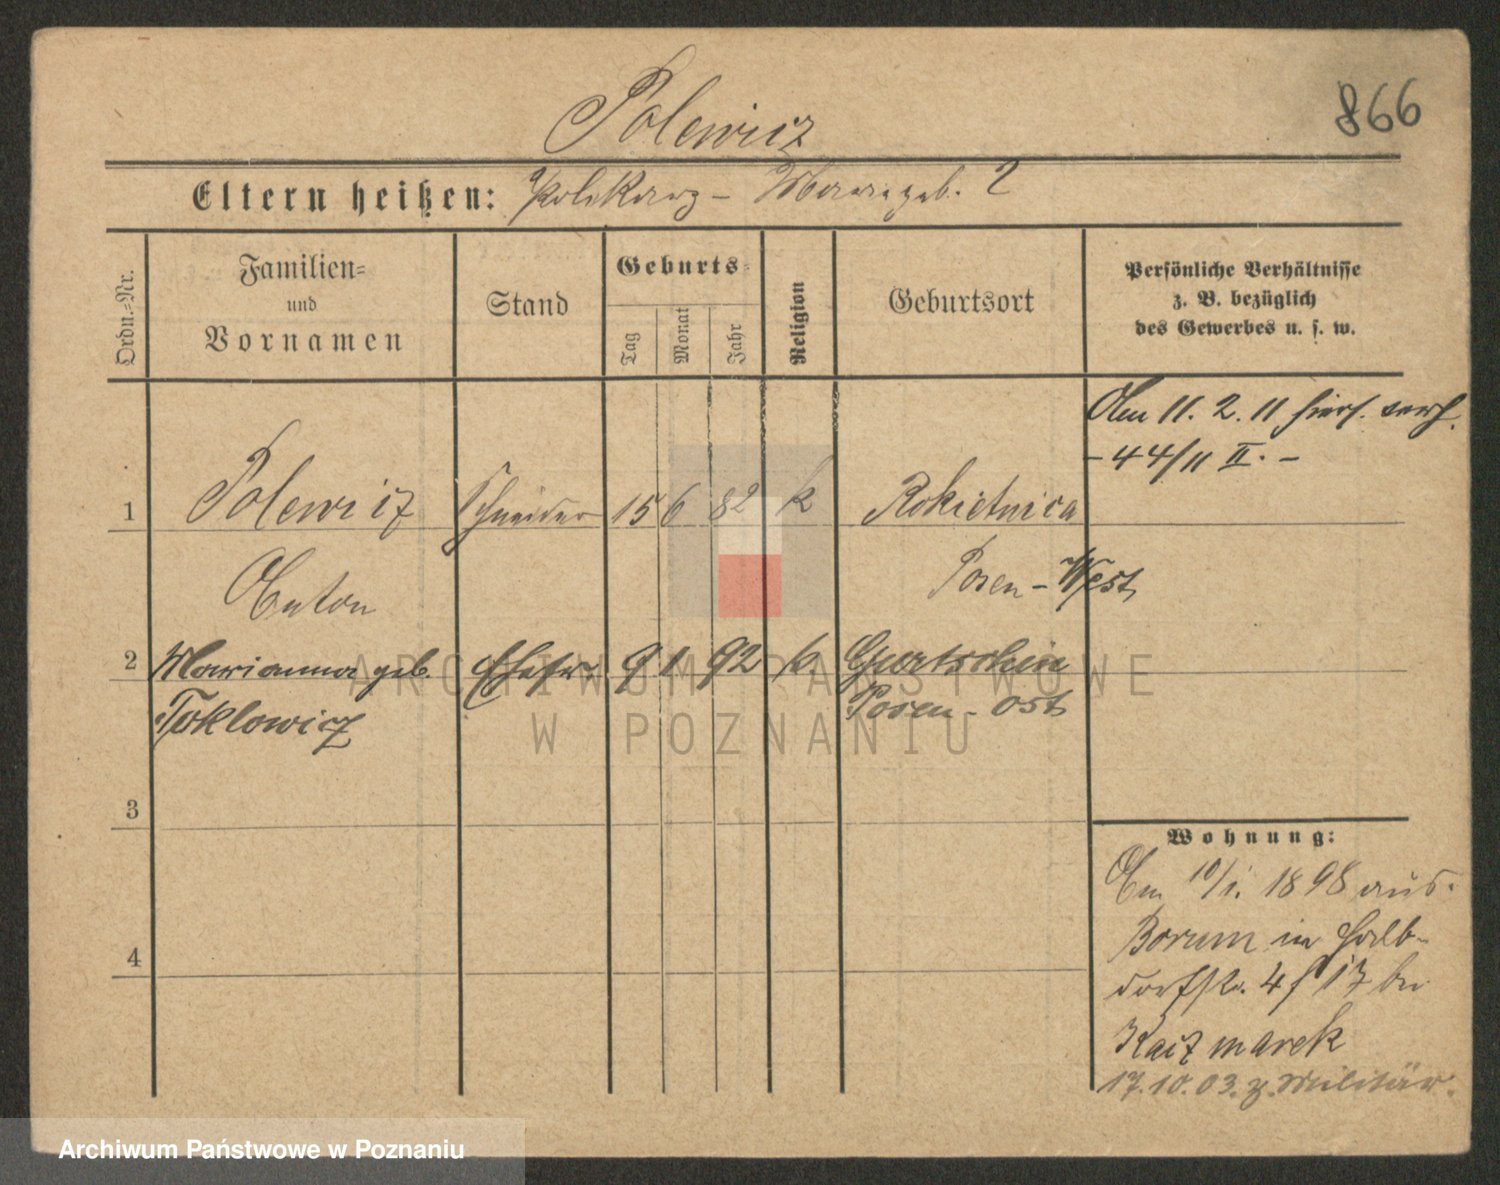 866
Polewicz
Eltern heißen: Polikarp - Marie geb. ?
Ordn.-Nr.
Familien-
und
Vornamen
Stand
Geburts-
Tag
Monat
Jahr
Religion
Geburtsort
Persönliche Verhältnisse
z. B. bezüglich
des Gewerbes u. s. w.
Am 11. 2. 11 hiers. verh.
- 44/11 II. -
1 Polewicz Schneider 15 6 82 k Rokietnica
Anton Posen - West
2 Marianna geb. Ehefr. 9 1 92 k. Gurtschin
Toklowicz Posen - Ost
3
4
Wohnung:
Am 10/1. 1898 aus
Borum in Halb-
dorfstr. 4 / 17 bei
Kaczmarek
17.10.03. z. Militär.
ARCHIWUM PAŃSTWOWE
W POZNANIU
Archiwum Państwowe w Poznaniu